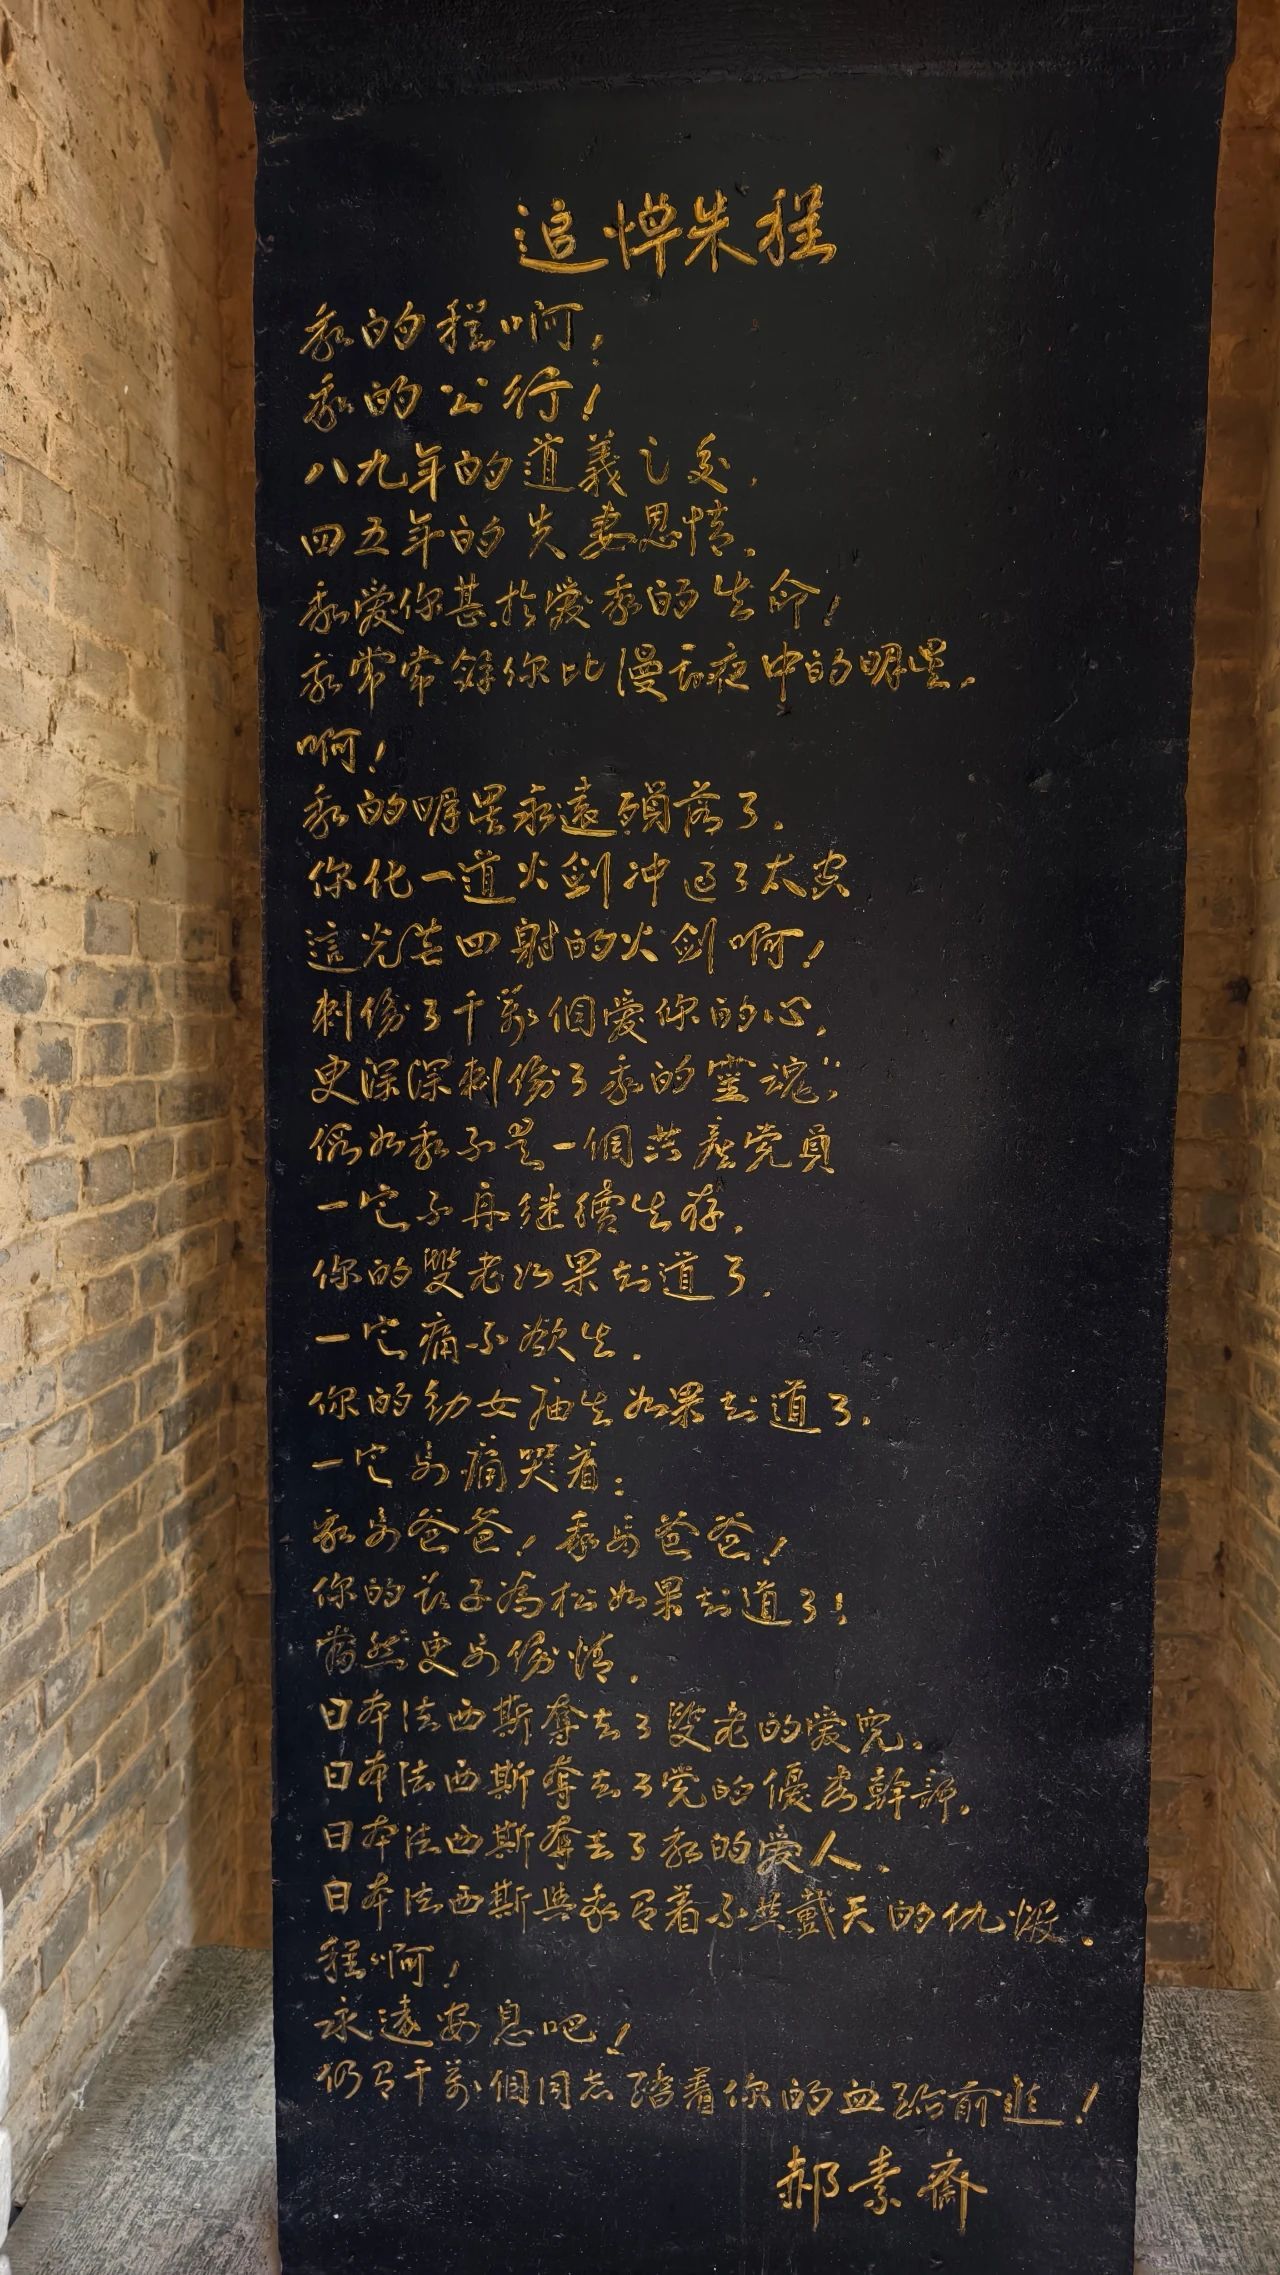 追悼朱程
我的程啊，
我的公行！
八九年的道義之交，
四五年的夫妻恩情，
我爱你甚於爱我的生命！
我常常將你比漫長夜中的明星，
啊！
我的明星永遠殞落了，
你化一道火劍冲過了太空
這光芒四射的火劍啊！
刺傷了千萬個愛你的心，
更深深刺傷了我的靈魂，
假如我不是一個共產党員
一定不再继續生存，
你的雙老如果知道了，
一定痛不欲生，
你的幼女 生如果知道了，
一定要痛哭着：
我要爸爸！我要爸爸！
你的孩子為松如果知道了！
當然更要傷情，
日本法西斯奪去了雙老的爱兒，
日本法西斯奪去了党的優秀幹部，
日本法西斯奪去了我的爱人，
日本法西斯與我有着不共戴天的仇恨，
程啊！
永遠安息吧！
仍有千萬個同志踏着你的血跡前進！
郝素斋